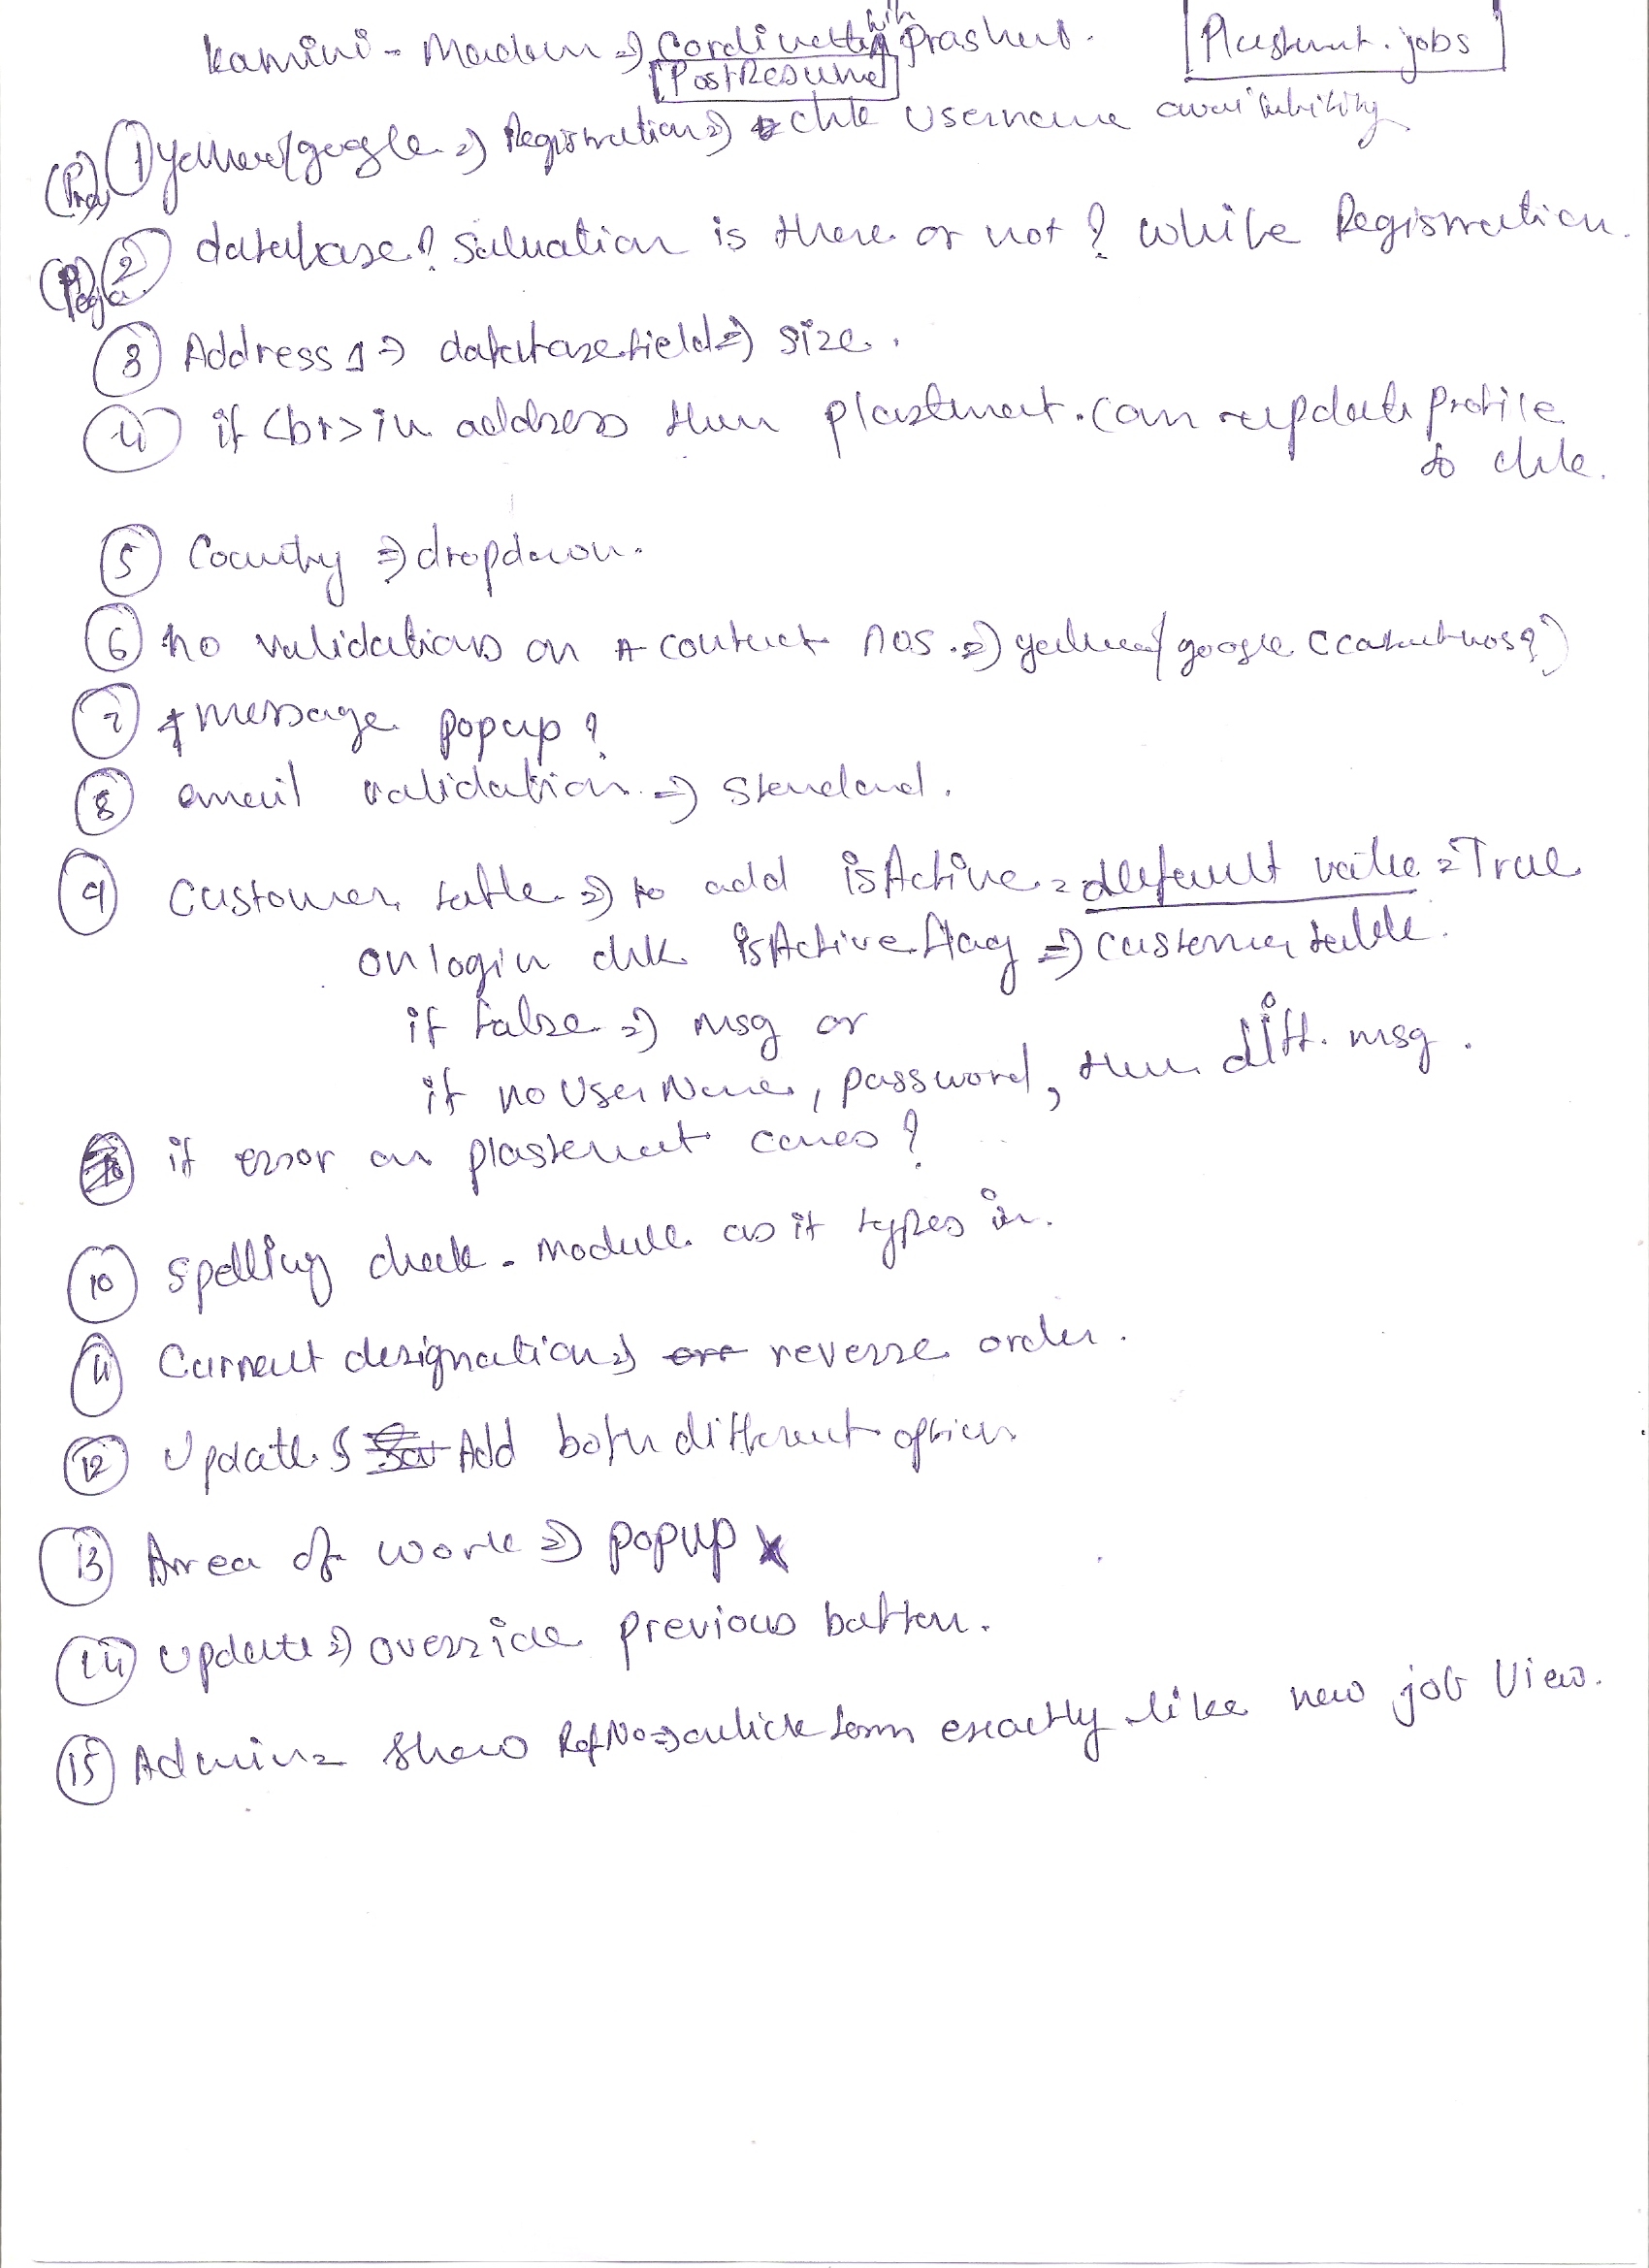 Kamini - Madam => Cordinating with Prashant.
[Plastemart.jobs]
[PostResume]
1) yahoo/google => Registration => chk Username availability
(Pooja) 2 database? Saluation is there or not? While Registration.
3 Address 1 => database field => size.
4 if <br> in address then plastemart.com update profile
to chk.
5 Country => dropdown.
6 no validations on contact nos. => yahoo/google (contact nos?)
7 message popup?
8 email validation => Standard.
9 Customer table => to add isActive = default value = True
on login chk isActive flag => customer table.
if false => msg or
if no UserName, password, then diff. msg.
if error on plastemart comes?
10 spelling check - module as it types in.
11 Current designation => reverse order.
12 Update & Add both different option
13 Area of work => popup
14 Update => override previous button.
15 Admin = Show RefNo => click form exactly like new job View.